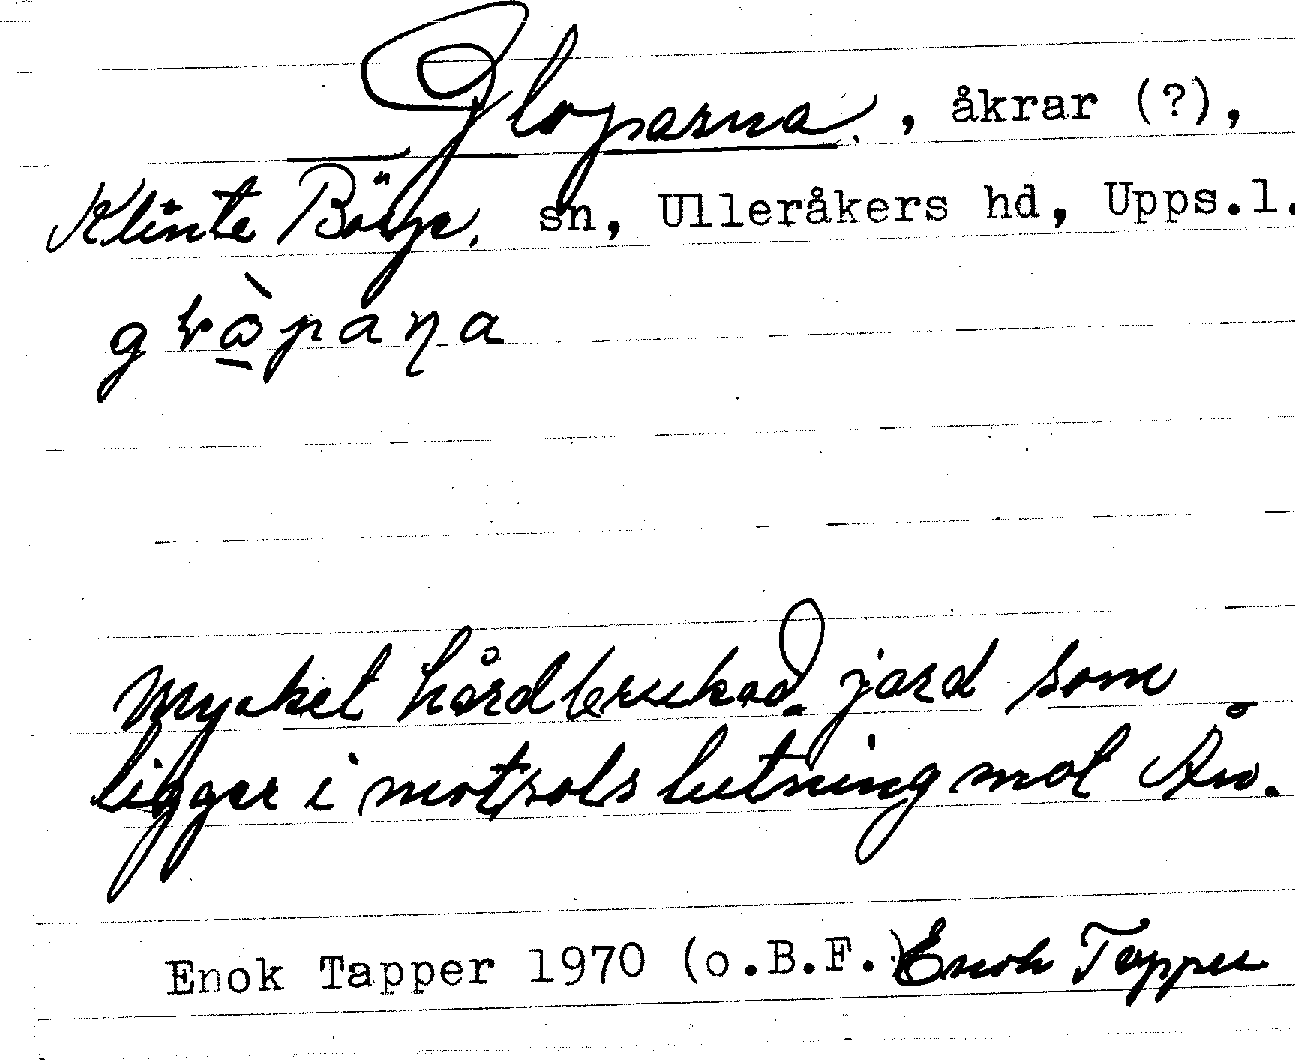 Gloparna, åkrar (?),
Klinte Börje. sn, Ulleråkers hd, Upps.l.
Mycket hårdbrukad jord som
ligger i motsols lutning mot Ån.
Enok Tapper 1970 (o.B.F.) Enok Tapper